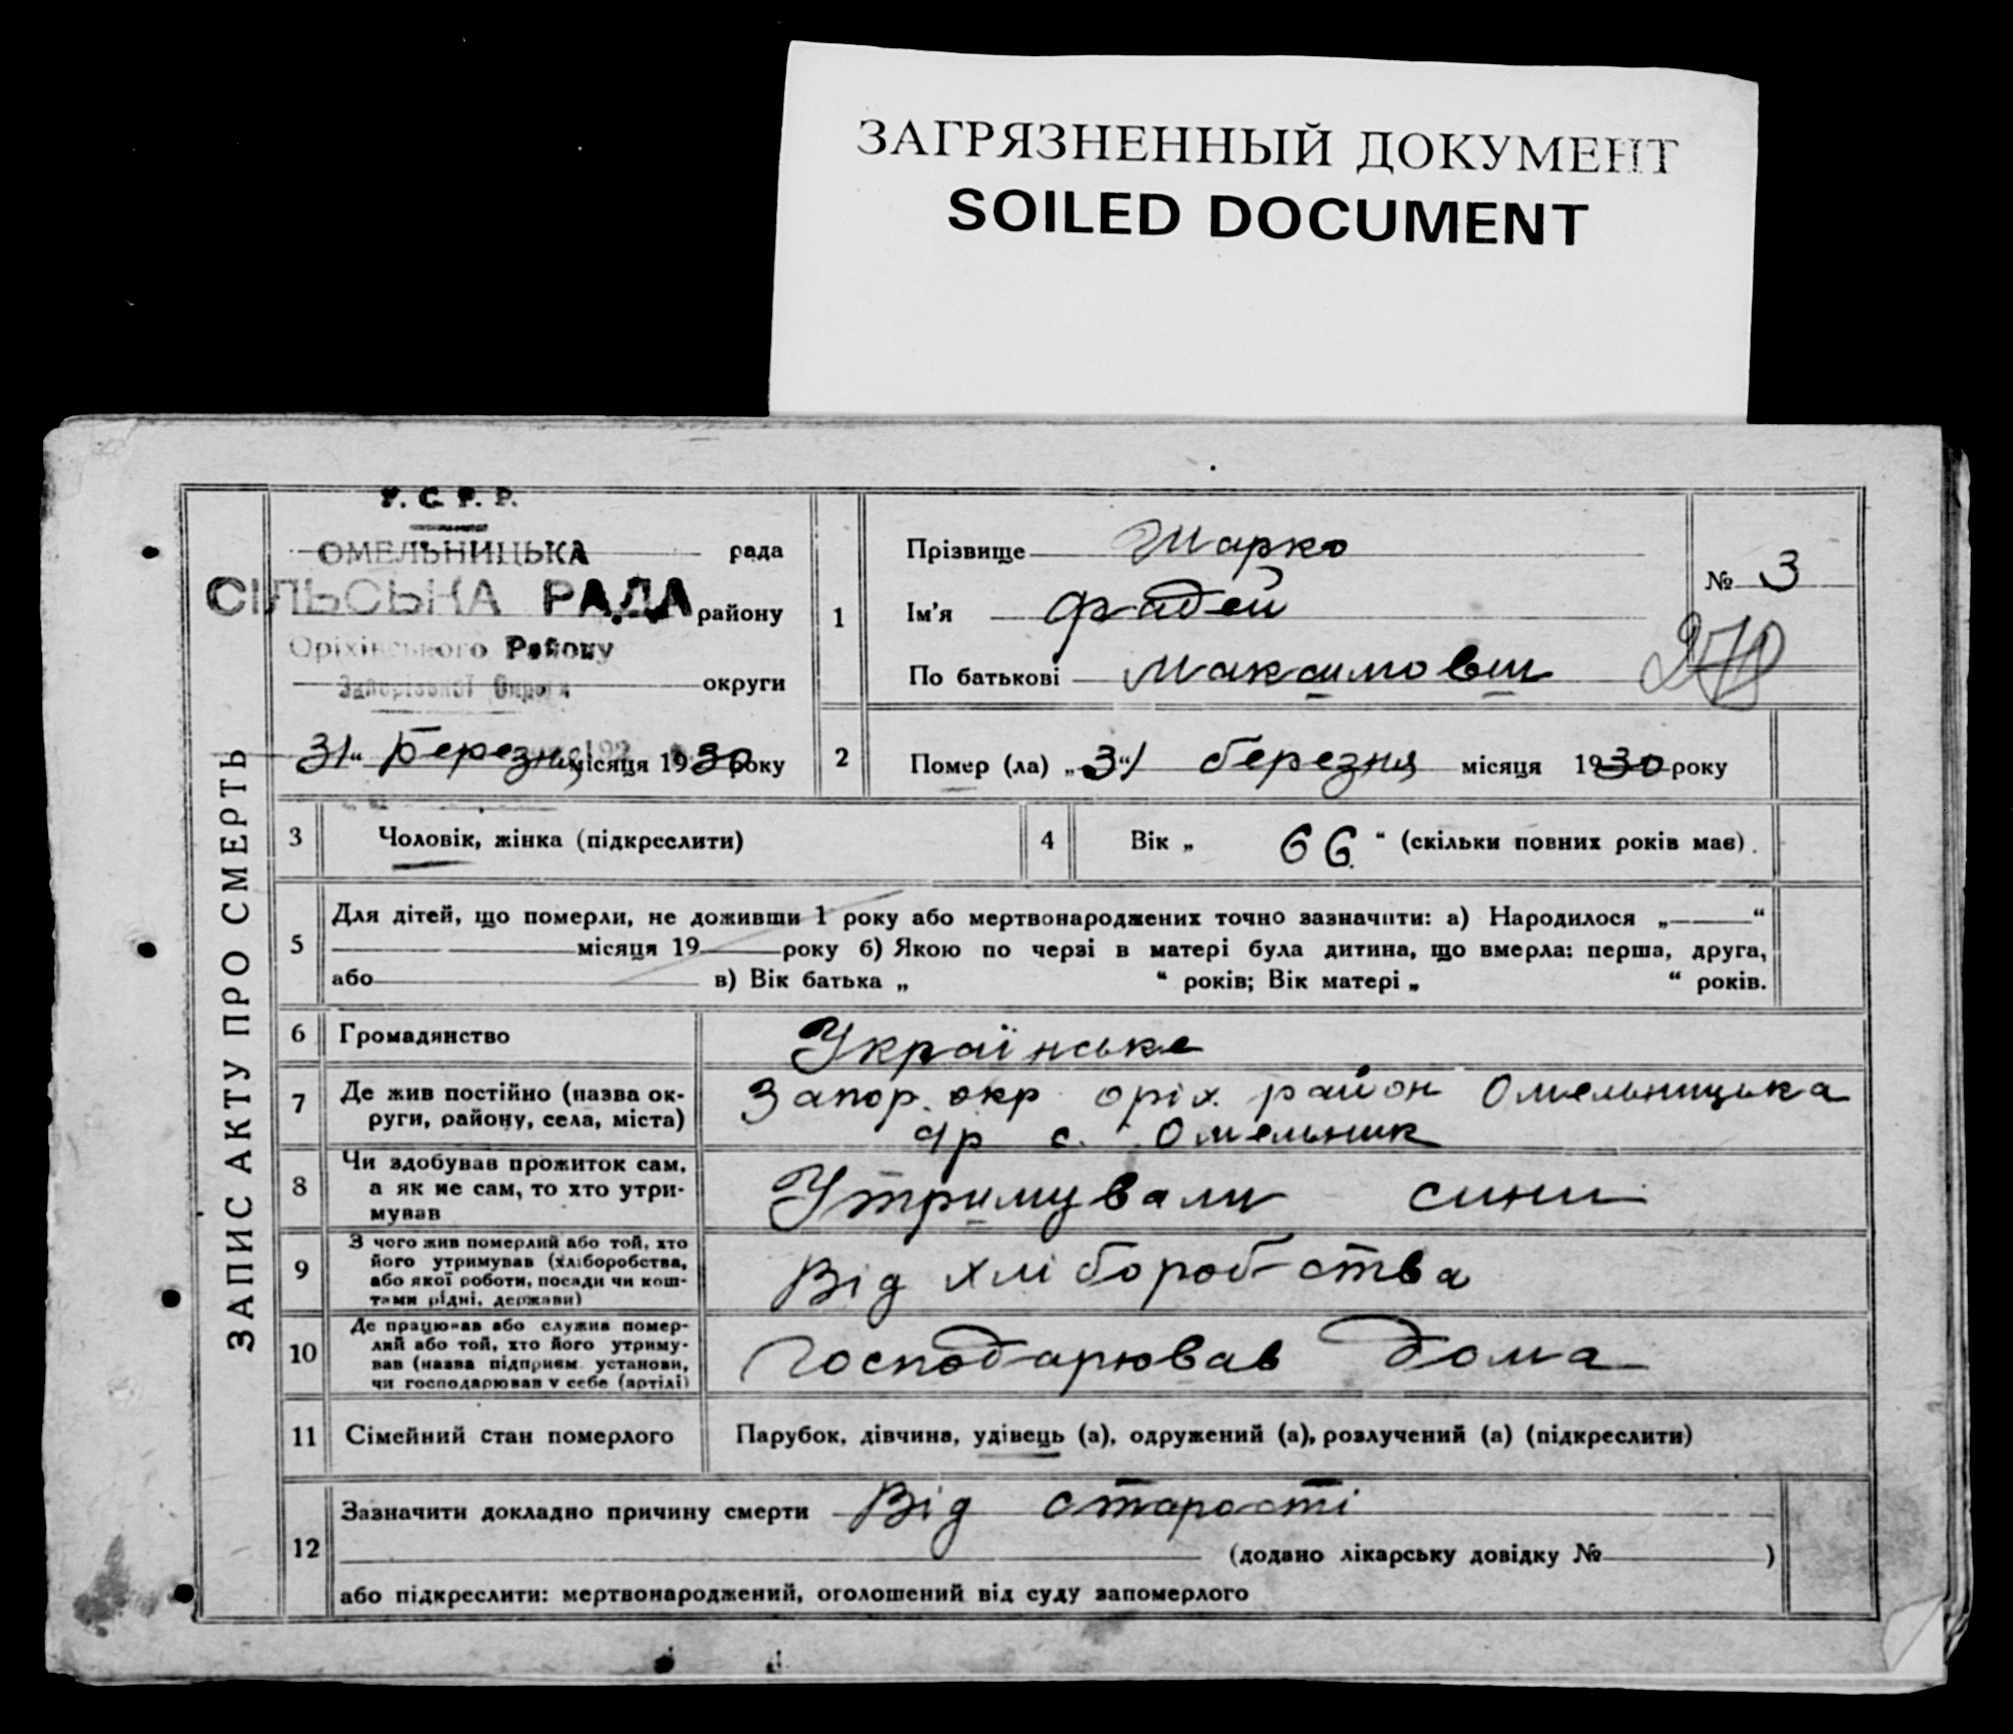 ЗАГРЯЗНЕННЫЙ ДОКУМЕНТ
SOILED DOCUMENT
ЗАПИС АКТУ ПРО СМЕРТЬ
У. С. Р. Р.
ОМЕЛЬНИЦЬКА рада
СІЛЬСЬКА РАДА району
Оріхівського Району
Запорізької Округи округи
31 " Березня місяця 1930 року
1
Прізвище Шарко
Ім'я Фадей
По батькові Максимович
№ 3
2
Помер (ла) „31" березня місяця 1930 року
3 Чоловік, жінка (підкреслити)
4 Вік „ 66 " (скільки повних років має).
5
Для дітей, що померли, не доживши 1 року або мертвонароджених точно зазначити: а) Народилося „ "
місяця 19 року б) Якою по черзі в матері була дитина, що вмерла: перша, друга,
або в) Вік батька „ " років; Вік матері „ " років.
6 Громадянство Українське
7 Де жив постійно (назва ок-
руги, району, села, міста)
Запор. окр оріх. район Омельницька
с/р с. Омельник
8 Чи здобував прожиток сам,
а як не сам, то хто утри-
мував
Утримували сини
9 З чого жив померлий або той, хто
його утримував (хліборобства,
або якої роботи, посади чи кош-
тами рідні, держави)
Від хліборобства
10 Де працював або служив помер-
лий або той, хто його утриму-
вав (назва підприєм. установи,
чи господарював у себе (артілі)
Господарював дома
11 Сімейний стан померлого Парубок, дівчина, удівець (а), одружений (а), розлучений (а) (підкреслити)
12
Зазначити докладно причину смерти Від старості
(додано лікарську довідку № )
або підкреслити: мертвонароджений, оголошений від суду запомерлого